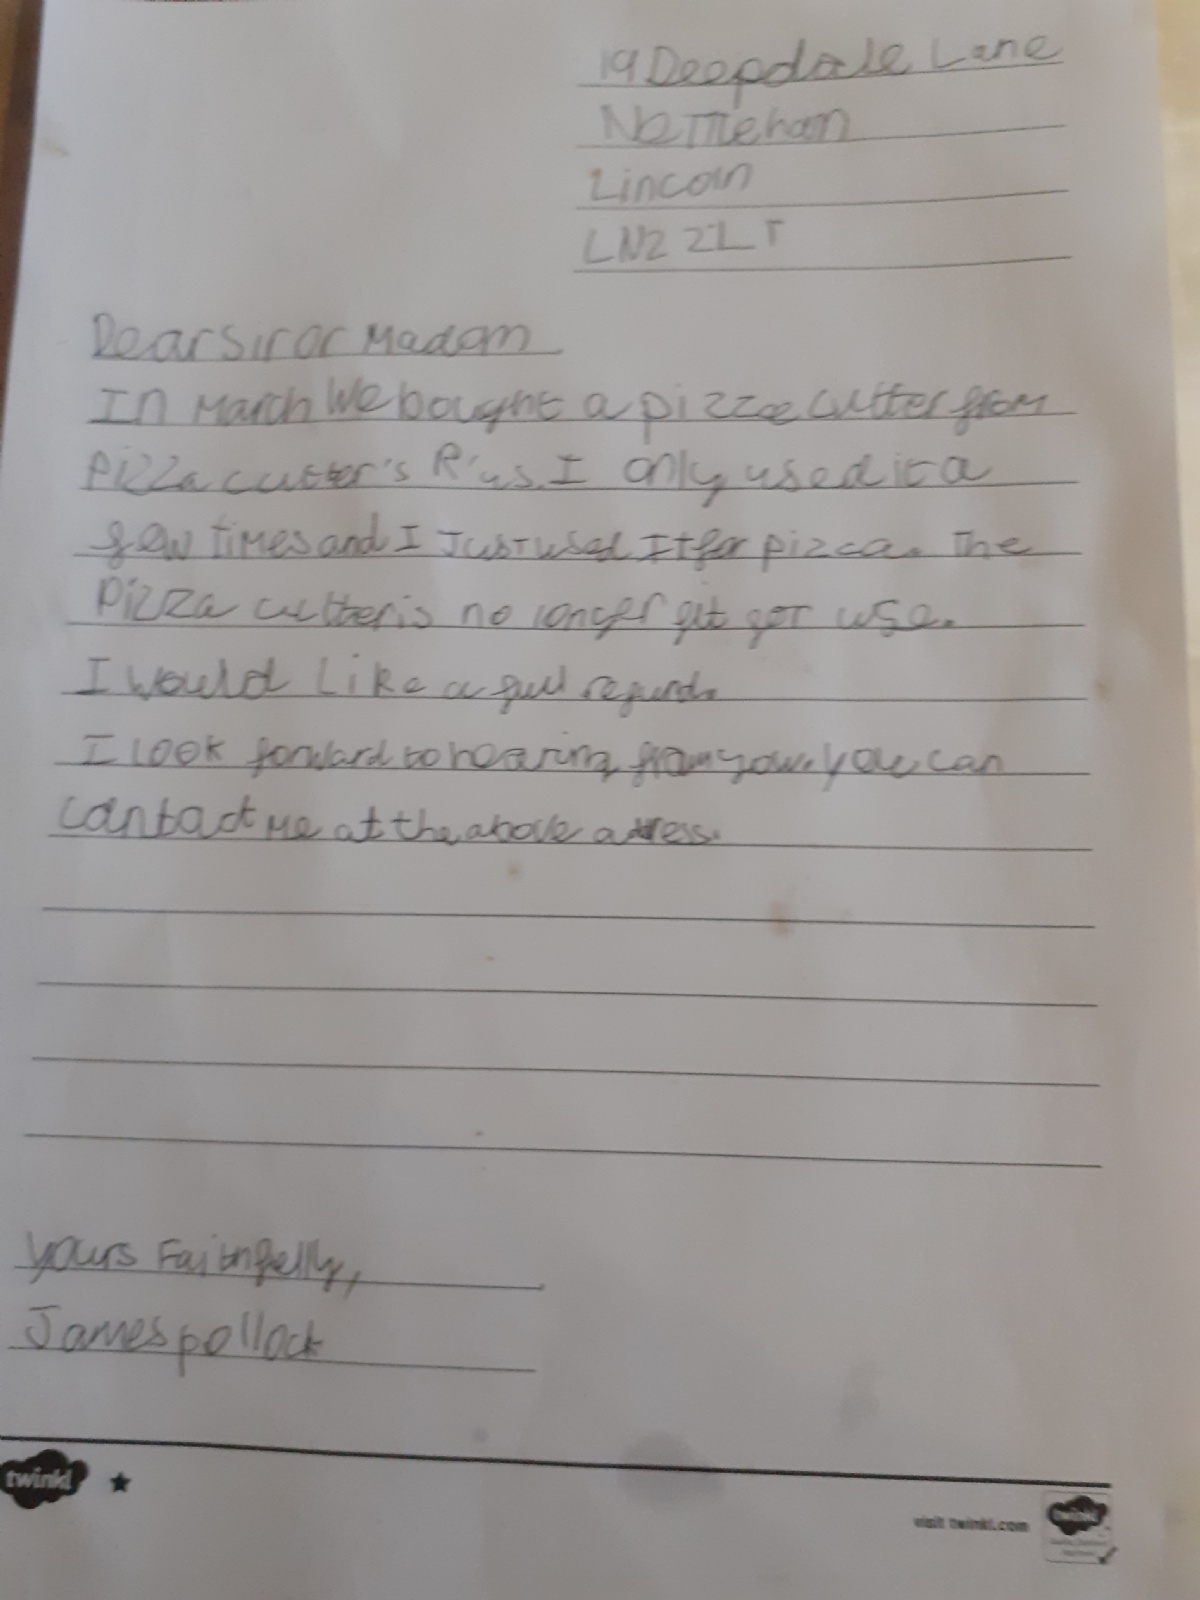 19 Deepdale Lane
Nettleham
Lincoln
LN2 2LT
Dear Sir or Madam
In March We bought a pizza cutter from
pizza cutter's R'us. I only used it a
few times and I Just used It for pizza. The
Pizza cutter is no longer fit for use.
I would like a full refund.
I look forward to hearing from you. you can
contact me at the above adress.
yours Faithfully,
James pollock
twinkl
visit twinkl.com
twinkl